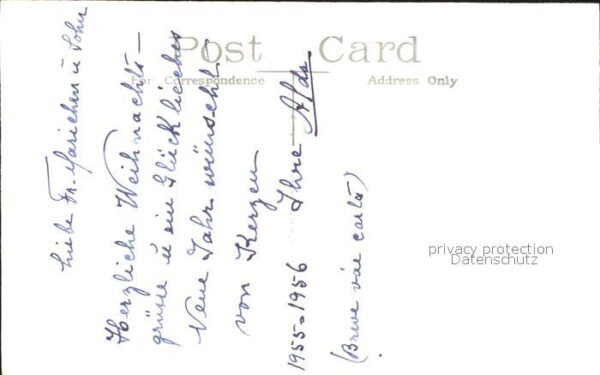 Post Card
For Correspondence
Address Only
Liebe Fr. Mariechen u Sohn
Herzliche Weihnachts-
grüsse u ein Glückliches
Neue Jahr wünscht
von Herzen
1955-1956 Ihre Alda.
(Breve vae carta)
privacy protection
Datenschutz